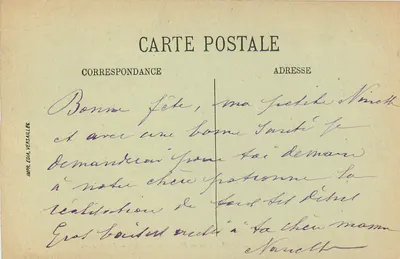 CARTE POSTALE
CORRESPONDANCE
ADRESSE
Bonne fête, ma petite Ninette
et avec une bonne santé je
demanderai pour toi demain
à notre chère patronne la
réalisation de tous tes désirs
Gros baisers à ta chère maman
Ninette
IMPR. EDIA, VERSAILLES